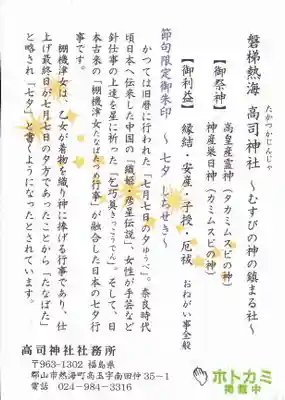 磐梯熱海 高司神社
たかつかじんじゃ
～むすびの神の鎮まる社～
【御祭神】
高皇産霊神(タカミムスビの神)
神産巣日神(カミムスビの神)
【御利益】 縁結・安産・子授・厄祓 おねがい事全般
節句限定御朱印 ～七夕 しちせき～
かつては旧暦に行われた「七月七日の夕ゆうべ」。奈良時代
頃日本へ伝来した中国の「織姫・彦星伝説」、女性が手芸など
針仕事の上達を星に祈った「乞巧奠きっこうでん」。そして、日
本古来の「棚機津女たなばたつめ行事」が融合した日本の七夕行
事です。
棚機津女は、乙女が着物を織り神に捧げる行事であり、仕
上げ最終日が七月七日の夕方であったことから「たなばた」
と略され「七夕」と書くようになったとされています。
高司神社社務所
〒963-1302 福島県
郡山市熱海町高玉字南田仲35－1
電話 024-984-3316
ホトカミ
掲載中